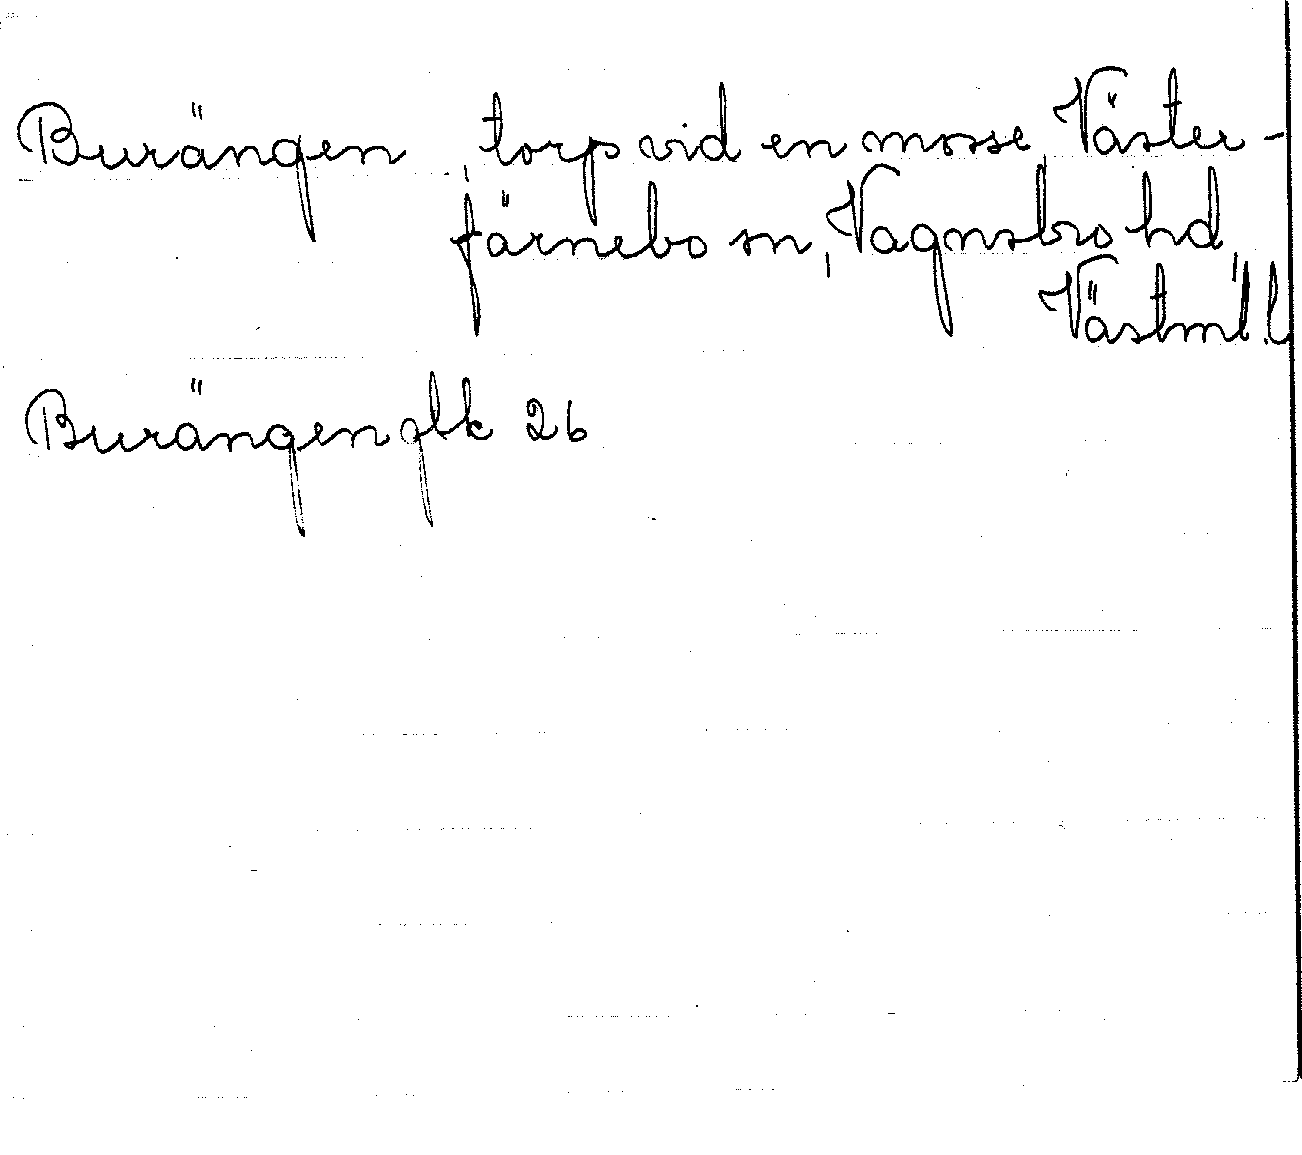 Burängen, torp vid en mosse, Väster-
färnebo sn, Vagnsbro hd,
Västml.l.
Burängen glk 26